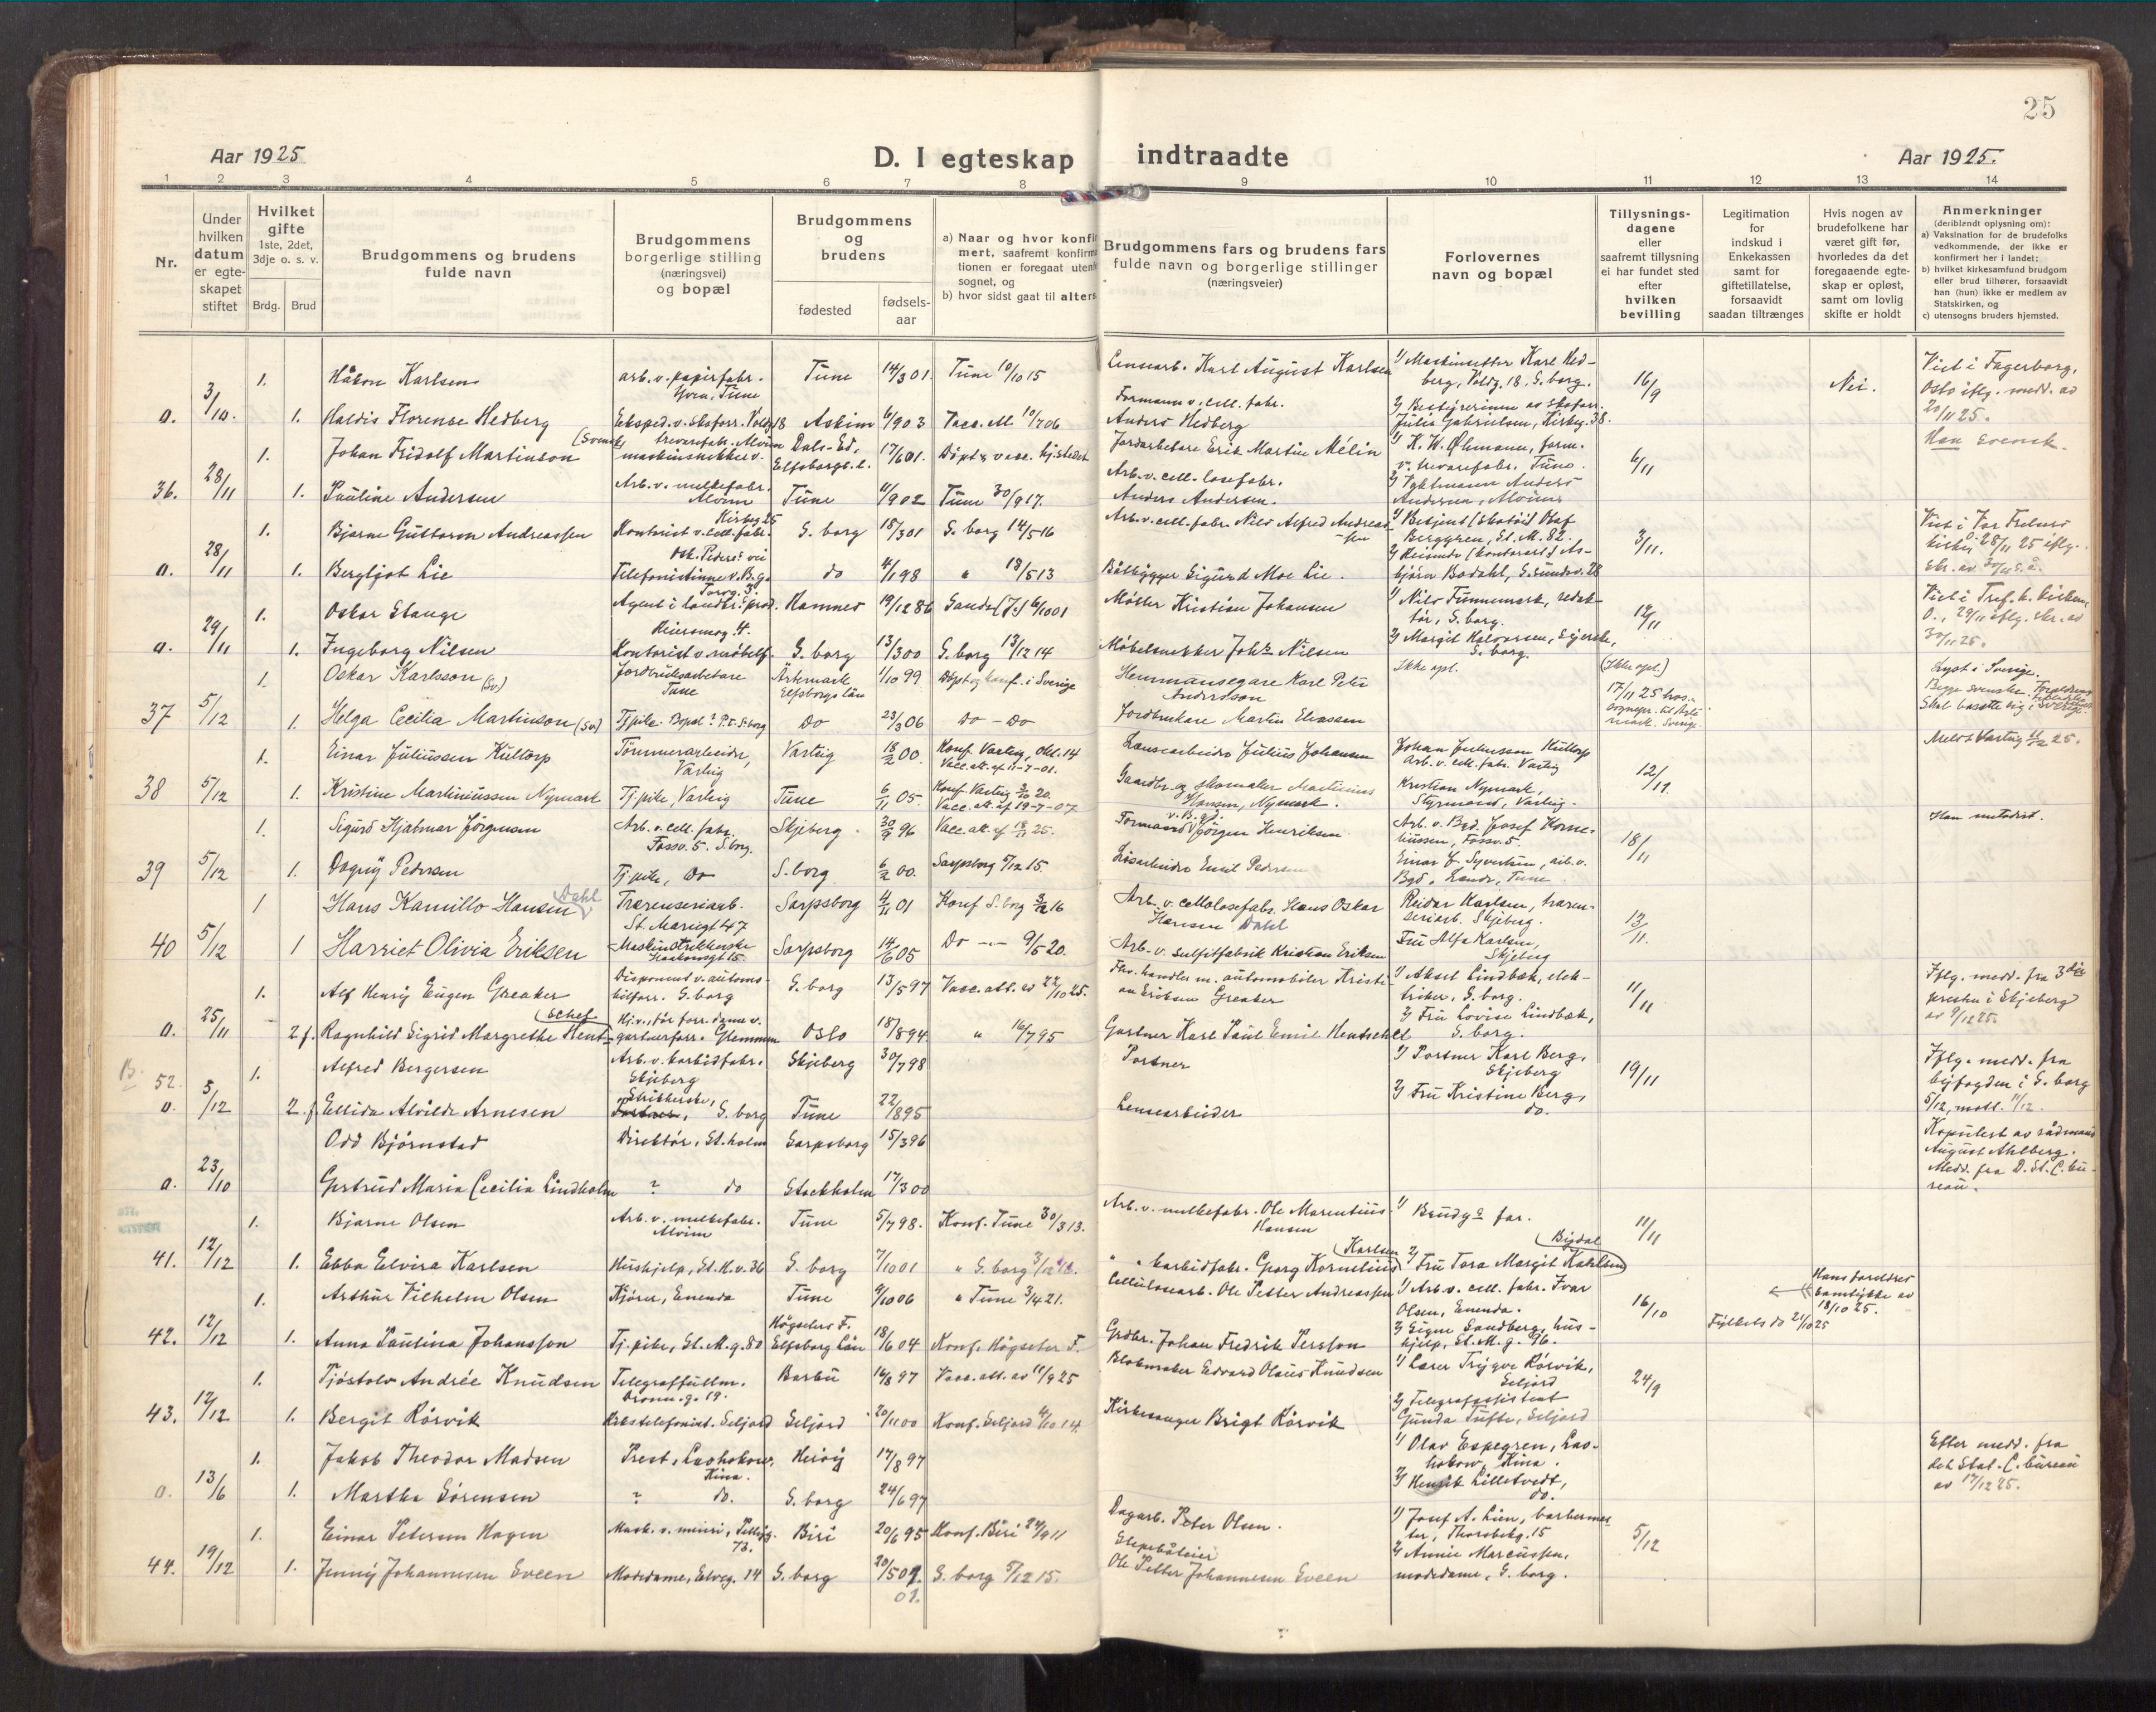 25
Aar 1925
D. I egteskap indtraadte
Aar 1925.
1 2 3 4 5 6 7 8 9 10 11 12 13 14
Nr.
Under hvilken datum er egteskapet stiftet
Hvilket gifte 1ste, 2det, 3dje o. s. v.
Brdg. Brud
Brudgommens og brudens fulde navn
Brudgommens borgerlige stilling (næringsvei) og bopæl
Brudgommens og brudens
fødested
fødsels-aar
a) Naar og hvor konfi
mert, saafremt konfirma
tionen er foregaat uten
sognet, og
b) hvor sidst gaat til alters
Brudgommens fars og brudens fars
fulde navn og borgerlige stillinger
(næringsveier)
Forlovernes
navn og bopæl
Tillysnings-
dagene
eller
saafremt tillysning
ei har fundet sted
efter
hvilken
bevilling
Legitimation
for
indskud i
Enkekassen
samt for
giftetillatelse,
forsaavidt
saadan tiltrænges
Hvis nogen av
brudefolkene har
været gift før,
hvorledes da det
foregaaende egte-
skap er opløst,
samt om lovlig
skifte er holdt
Anmerkninger
(deriblandt oplysning om):
a) Vaksination for de brudefolks
vedkommende, der ikke er
konfirmert her i landet;
b) hvilket kirkesamfund brudgom
eller brud tilhører, forsaavidt
han (hun) ikke er medlem av
Statskirken, og
c) utensogns bruders hjemsted.
1. Håkon Karlsen arb. v. papirfabr. Tune 14/3 01. Tune 10/10 15 Karl August Karlsen 1) Karl Hedberg, Voldg. 18, S. borg. 16/9 Nei. Viet i Fagerborg, Oslo iflg. medd. av 20/11 25.
a. 3/10. 1. Haldis Florense Hedberg Eksped. v. Skoforr. Voldg 18 Askim 6/9 03 Formann v. cell. fabr. Anders Hedberg 2) Bestyrerinne av skoforr. Julia Gabrielsen, Kirkeg. 38.
1. Johan Fridolf Martinson (Svensk) Dals-Ed, Elfsborgs l. 17/6 01. Jordarbetare Erik Martin Mélin 1) K. W. Öhmann, form. v. trevarefabr. Tune. 6/11 Han svensk.
36. 28/11 1. Pauline Andersen Arb. v. melkefabr. Alvim Tune 9 02 Tune 30/9 17. Arb. v. cell. losefabr. Anders Andersen. 2) Vaktmann Anders Andersen, Alvim
1. Bjarne Guttorm Andreassen Kontorist v. cell. fabr. S. borg 18/3 01 S. borg 14/5 16 Arb. v. cell. fabr. Nils Alfred Andreassen 1) Betjent (Skotöi) Olaf Berggren, St. M. 82. 3/11. Viet i Vor Frelsers kirke, 28/11 25 iflg.
a. 28/11 1. Bergljot Lie Telefonistinne v. B.g. do 4/1 98 " 18/5 13 Båtbygger Sigurd Moe Lie.
1. Oskar Stange Agent i landbr. prod. Hamnes 19/12 86 Møller Kristian Johansen 1) Nils Tunnemark, redaktør, S. borg. 12/11
a. 29/11 1. Ingeborg Nilsen Kontorist v. møbelf. S. borg 13/3 00 S. borg 13/12 14 Møbelsnekker Johs. Nilsen 2) Margit Halvorsen, S. borg.
1. Oskar Karlsson (Sv) Jordbruksarbetare Tune Ärtemark Elfsborgs län 1/10 99 Döpt og konf. i Sverige Hemmansegare Karl Peter Andersson Ikke opl. (Ikke opl.) Lyst i Sverige.
37 5/12 1. Helga Cecilia Martinson (Sv) Tj.pike. Bopæl? P.t. S.borg Do 23/3 06 Do - Do Jordbrukare Martin Eliassen 17/11 25 Begge svenske. Skal bosætte sig i Sverige.
1. Einar Juliussen Kultorp Tømmerarbeider, Varteig Varteig 18/2 00. Konf. Varteig, Okt. 14 Vacc. att. af 11-7-01. Lensearbeider Julius Johansen Johan Juliussen Kultorp Arb. v. cell. fabr. Varteig 12/11. Meldt Varteig 25.
38 5/12 1. Kristine Martiniussen Nymark Tj.pike, Varteig Tune 6/11 05. Konf. Varteig 20. Vacc. att. af 19-7-07 Gaardbr. og skomaker Martinius Hansen, Nymark. Kristian Nymark, Styrmand, Varteig.
1. Sigurd Hjalmar Jörgensen Arb. v. cell. fabr. Fossv. 5. S.borg. Skjeberg 30/9 96 Vacc. att. af 18/11 25. Formand v. B.gd. Jørgen Henriksen Arb. v. Bgd. Josef Kornelius­sen, Fossv. 5. 18/11 Han metodist.
39 5/12 1. Dagny Pedersen Tj.pike, Do S. borg 6/2 00. Sarpsborg 5/12 15. Emil Pedersen Einar J. Syvertsen, arb. v. Bgd., Tune
1 Hans Kamillo Hansen Dahl Trærenseriarb. St. Mariegt 47 Sarpsborg 4/11 01 Konf S.borg 16 Arb. v. cellolosefabr. Hans Oskar Hansen Dahl Reidar Karlsen, trærenseriarb. Skjeberg. 13/11.
40 5/12 1 Harriet Olivia Eriksen Maskinstrikkerske Sarpsborg 14/6 05 Do - 9/5 20. Arb. v. Sulfitfabrik Kristian Eriksen Fru Alfa Karlsen, Skjeberg
1. Alf Henry Eugen Greaker Disponent v. automobilforr. S. borg S. borg 13/5 97 Vacc. att. av 22/10 25. Fhv. handler m. automobiler Kristian Eriksen Greaker 1) Aksel Lindbæk, elektriker, S. borg. 11/11 Iflg. medd. fra 3die presten i Skjeberg av 9/12 25.
a. 25/11 2 f. Ragnhild Sigrid Margrethe Hentschel gartnerforr. Glemmen Oslo 18/8 94. " 16/7 95 Gartner Karl Paul Emil Hentschel 2) Fru Lovise Lindbæk, S. borg.
B. 52. 1. Alfred Bergersen Arb. v. karbidfabr. Skjeberg Skjeberg 30/7 98 Portner 1) Portner Karl Berg, Skjeberg 19/11 Iflg. medd. fra byfogden i S. borg
a. 5/12 2. f. Ellida Alvilde Arnesen Strikkerske, S. borg Tune 22/8 95 Lensearbeider 2) Fru Kristine Berg, do. 5/12, mott. 11/12.
Odd Björnstad Direktör, St.holm Sarpsborg 15/3 96 Kopulert av rådmand August Ahlberg.
a. 23/10 Gertrud Maria Cecilia Lindholm ? do Stockholm 17/3 00 Medd. fra D. St. C. bureau.
1. Bjarne Olsen Arb. v. melkefabr. Alvim Tune 5/7 98. Konf. Tune 30/3 13. Arb. v. melkefabr. Ole Marentius Hansen 1) Brudg.s far. 11/11
41. 12/12 1. Ebba Elvira Karlsen Hushjelp, St. H. v. 36 S. borg 7/10 01 " S. borg " karbidfabr. Georg Kornelius Karlsen 2) Fru Tora Margit Karlsen Bigdal
1. Arthur Vilhelm Olsen Kjører, Enenda Tune 9/10 06 " Tune 3/4 21. Cellulosearb. Ole Petter Andreassen 1) Arb. v. cell. fabr. Ivar Olsen, Enenda. 16/10 Fylkets do 21/10 25 Hans foreldres samtykke av 18/10 25.
42. 12/12 1. Anna Paulina Johansson Tj. pike, St. M. g. 80 Högsäters F. Elfsborg Län 18/6 04 Konf. Högsäter F. Grdbr. Johan Fredrik Persson 2) Signe Sandberg, hushjelp, St. M. g. 96.
1. Tjöstolv Andrée Knudsen Telegraffullm. Dronn. g. 19. Barbu 16/8 97 Vacc. att. av 11/9 25 Blokmaker Edvard Olaus Knudsen 1) Lærer Trygve Rörvik, Seljord 24/9
43. 12/12 1. Bergit Rörvik Rikstelefonist. Seljord Seljord 20/11 00 Konf. Seljord 4/10 14. Kirkesanger Brigt Rörvik 2) Telegrafassistent Gunda Tufte, Seljord
1. Jakob Theodor Madsen Prest, Laohokow, Kina. Herøy 17/8 97 1) Olav Espegren, Laohokow, Kina. Efter medd. fra det Stat. C. bureau av 17/12 25.
a. 13/6 1. Martha Sörensen ? do. S. borg 24/6 97 2) Henrik Lilletvedt, do.
1. Einar Petersen Hagen Biri 20/6 95 Konf. Biri 24/9 11 Dagarb. Peter Olsen. 1) Josef A. Lien, barbermester, Thorsbekg. 15 5/12
44. 19/12 1. Jenny Johannesen Sveen Motedame, Elveg. 14 S. borg 20/5 01. S. borg 5/12 15. Ole Petter Johannesen Sveen 2) Annie Marcussen, motedame, S. borg.